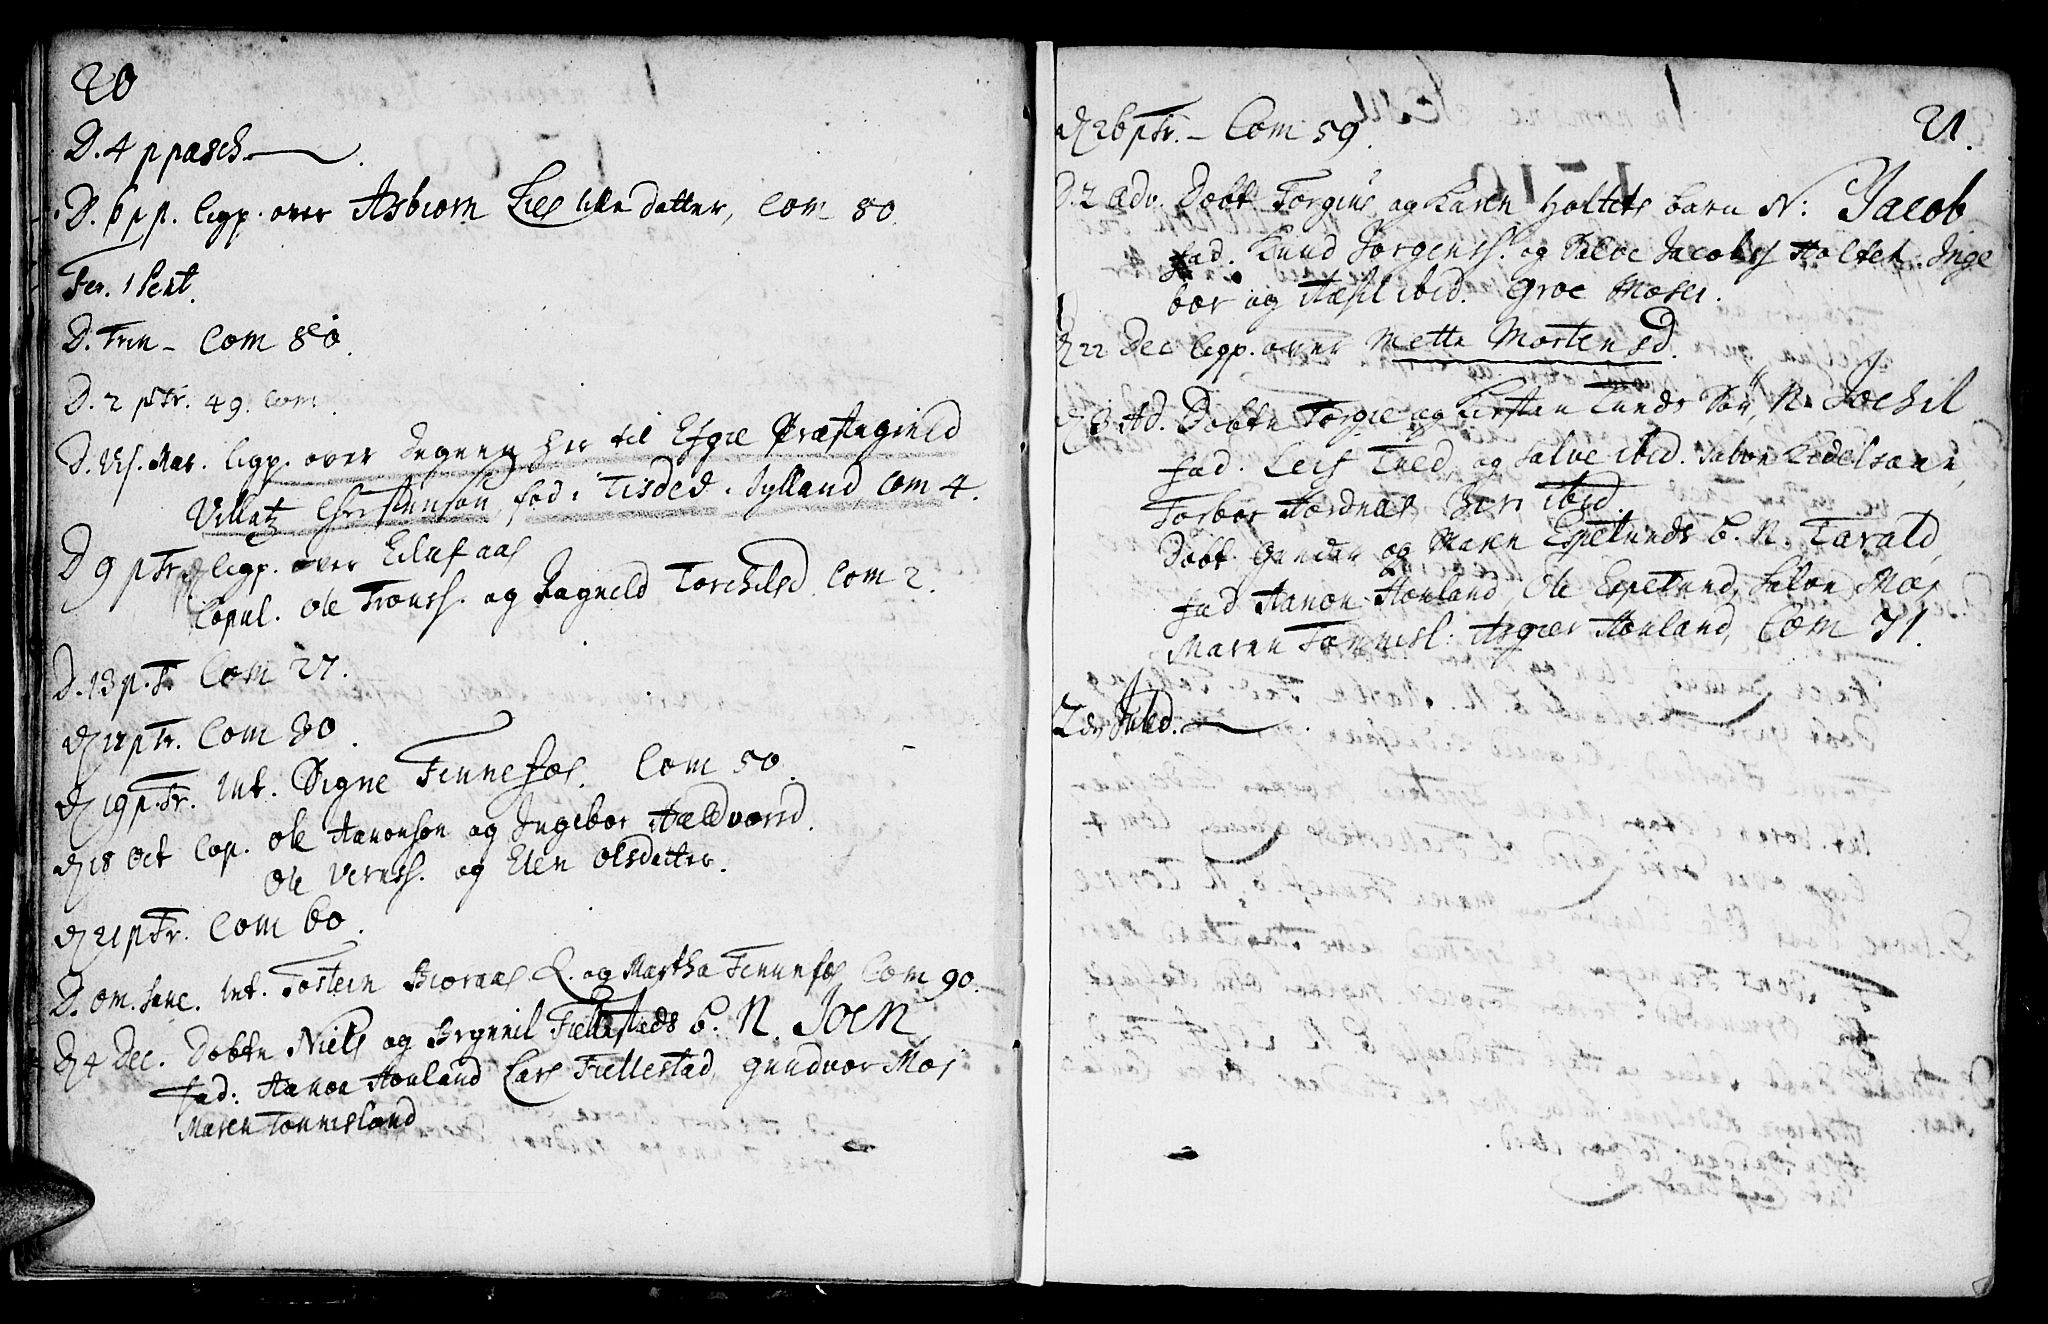 20
D. 4 p pasch
D. 6 p p. ligp. over Asbiorn Lies lille datter, Com 80
Fer. 1 Pent.
D. Trin - Com 80.
D. 2 p Tr. 49. Com.
D. Vis. Mar. ligp. over Degnen her til Efgie Præstegield
Villatz Christenson, fød i Tisded i Jylland Com 4.
D 9 p Tr. ligp. over Eiluf aas
Copul. Ole Tronss. og Ragneld Torchilsd. Com 2.
D. 13 p. Tr Com 27.
p Tr. Com 30.
D 19 p. Tr. Int. Signe Finnefos. Com 50.
D 18 Oct Cop. Ole Aanonson og Ingebor Haldvorsd.
Ole Verns. og Elen Olsdatter.
D 21 p Tr. Com 60.
D. om. sanc. Int. Tostein Bioraas Q. og Martha Finnefos Com 90.
D 4 Dec. Døbtn Niels og Brynnil Fiellestads b. N. Joen
fad: Aanon Honland, Lars Fiellestad, Gundvor Mos
Maren Tonnesland
21.
D 26 p Tr. - Com 59.
D. 2 adv. Døbt Torgius og Karen Holtets barn N: Jacob
fad. Knud Jorgenss. og Salve Jacobss Holtet. Inge
bor og Aasil ibid. Groe Moser.
D 22 Dec ligp. over Mette Mortensd.
D 3 Ad. Døbtn Torgie og Kirsten Tveds Søn, N. Jochil
fad. Leif Tved, og Salve ibid. Salvo Kedelsaen,
Torbor Hordnes Siri ibid.
Døbt. Gunder og Maren Espelunds b. N. Tarald,
fad Aanon Honland, Ole Espelund, Salvo Mos
Maren Tonnesl: Asgier Honland, Com 71.
2 dn Juled.